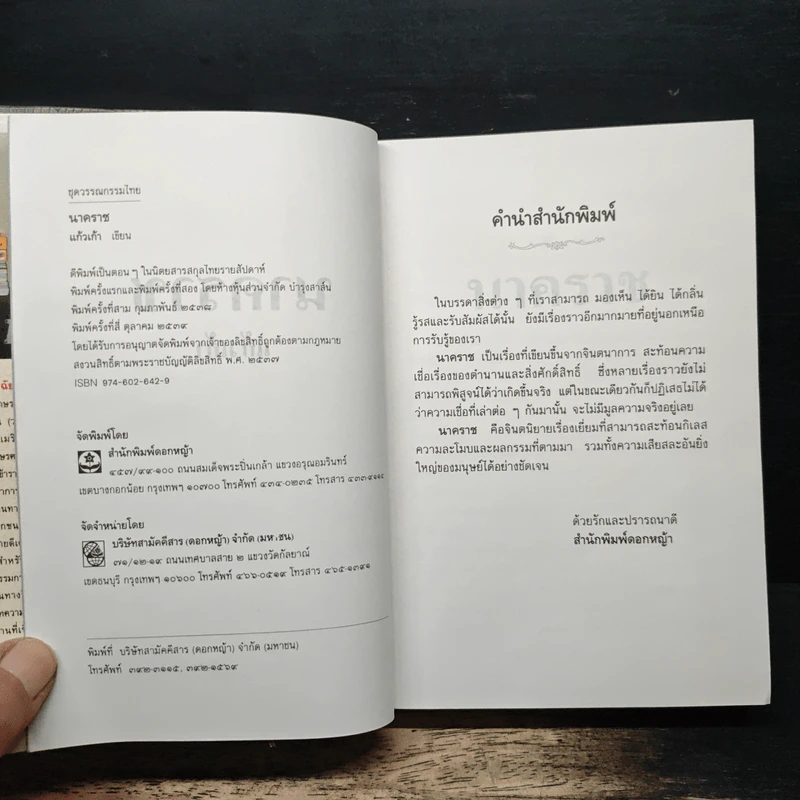 ชุดวรรณกรรมไทย
นาคราช
แก้วเก้า เขียน
ตีพิมพ์เป็นตอน ๆ ในนิตยสารสกุลไทยรายสัปดาห์
พิมพ์ครั้งแรกและพิมพ์ครั้งที่สอง โดยห้างหุ้นส่วนจำกัด บำรุงสาส์น
พิมพ์ครั้งที่สาม กุมภาพันธ์ ๒๕๓๘
พิมพ์ครั้งที่สี่ ตุลาคม ๒๕๓๙
โดยได้รับการอนุญาตจัดพิมพ์จากเจ้าของลิขสิทธิ์ถูกต้องตามกฎหมาย
สงวนสิทธิ์ตามพระราชบัญญัติลิขสิทธิ์ พ.ศ. ๒๕๓๗
ISBN 974-602-642-9
จัดพิมพ์โดย
สำนักพิมพ์ดอกหญ้า
๔๕๗/๙๙-๑๐๐ ถนนสมเด็จพระปิ่นเกล้า แขวงอรุณอมรินทร์
เขตบางกอกน้อย กรุงเทพฯ ๑๐๗๐๐ โทรศัพท์ ๔๓๔-๐๒๓๕ โทรสาร
จัดจำหน่ายโดย
บริษัทสามัคคีสาร (ดอกหญ้า) จำกัด (มหาชน)
๗๑/๑๒-๑๙ ถนนเทศบาลสาย ๒ แขวงวัดกัลยาณ์
เขตธนบุรี กรุงเทพฯ ๑๐๖๐๐ โทรศัพท์ ๔๖๖-๐๕๑๙ โทรสาร ๔๖๕-๑๓๙๑
พิมพ์ที่ บริษัทสามัคคีสาร (ดอกหญ้า) จำกัด (มหาชน)
โทรศัพท์ ๓๙๒-๓๑๑๕, ๓๙๒-๑๕๖๙
คำนำสำนักพิมพ์
ในบรรดาสิ่งต่าง ๆ ที่เราสามารถ มองเห็น ได้ยิน ได้กลิ่น
รู้รสและรับสัมผัสได้นั้น ยังมีเรื่องราวอีกมากมายที่อยู่นอกเหนือ
การรับรู้ของเรา
นาคราช เป็นเรื่องที่เขียนขึ้นจากจินตนาการ สะท้อนความ
เชื่อเรื่องของตำนานและสิ่งศักดิ์สิทธิ์ ซึ่งหลายเรื่องราวยังไม่
สามารถพิสูจน์ได้ว่าเกิดขึ้นจริง แต่ในขณะเดียวกันก็ปฏิเสธไม่ได้
ว่าความเชื่อที่เล่าต่อ ๆ กันมานั้น จะไม่มีมูลความจริงอยู่เลย
นาคราช คือจินตนิยายเรื่องเยี่ยมที่สามารถสะท้อนกิเลส
ความละโมบและผลกรรมที่ตามมา รวมทั้งความเสียสละอันยิ่ง
ใหญ่ของมนุษย์ได้อย่างชัดเจน
ด้วยรักและปรารถนาดี
สำนักพิมพ์ดอกหญ้า